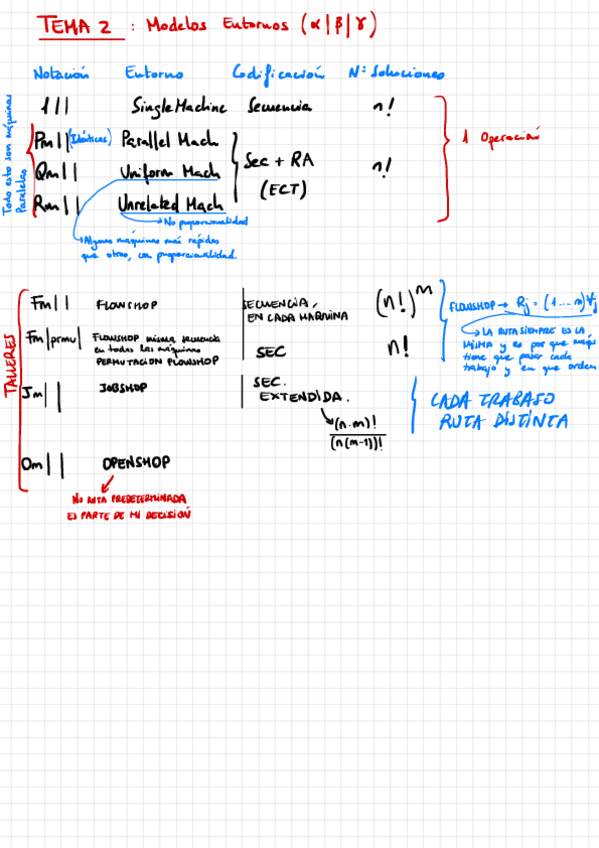 TEMA 2 : Modelos Entornos (α|β|γ)
Notación Entorno Codificación Nº Soluciones
1|| Single Machine Secuencia n!
Pm|| (Idénticas) Parallel Mach
Qm|| Uniform Mach
Rm|| Unrelated Mach
Sec + RA
(ECT)
n!
1 Operación
Todo esto son máquinas
Paralelas
No proporcionalidad
Algunas máquinas más rápidas
que otras, con proporcionalidad.
TALLERES
Fm|| FLOWSHOP
SECUENCIA,
EN CADA MAQUINA
(n!)^m
FLOWSHOP → Rj = (1....m) ∀j
LA RUTA SIEMPRE ES LA
MISMA y es por que máqs
tiene que pasar cada
trabajo y en que orden
Fm|prmu| FLOWSHOP misma secuencia
en todas las máquinas
PERMUTACION FLOWSHOP
SEC n!
Jm|| JOBSHOP
SEC.
EXTENDIDA.
(n.m)!
(n(m-1))!
CADA TRABAJO
RUTA DISTINTA
Om|| OPENSHOP
NO RUTA PREDETERMINADA
ES PARTE DE MI DECISIÓN